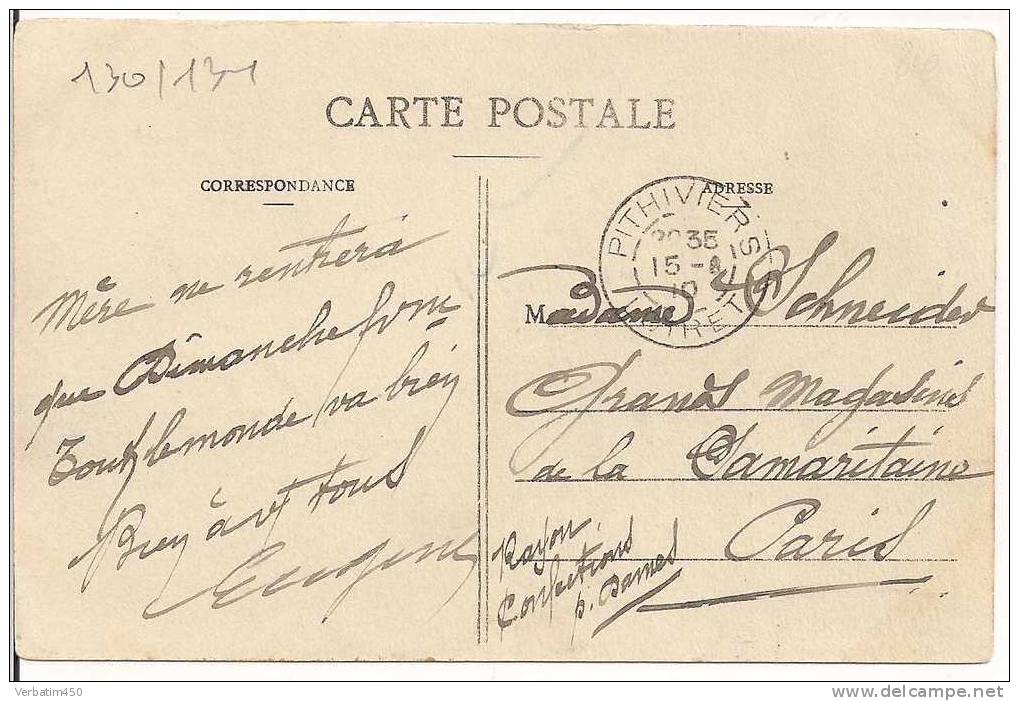 130/131
CARTE POSTALE
CORRESPONDANCE
ADRESSE
PITHIVIERS
35
15 - 8
10
LOIRET
Mère ne rentrera
que Dimanche
Tout le monde va bien
Bien à vs tous
Eugène
Madame Schneider
Grands Magasins
de la Samaritaine
Paris
Rayon
Confections
p. Dames
Verbatim450
www.delcampe.net